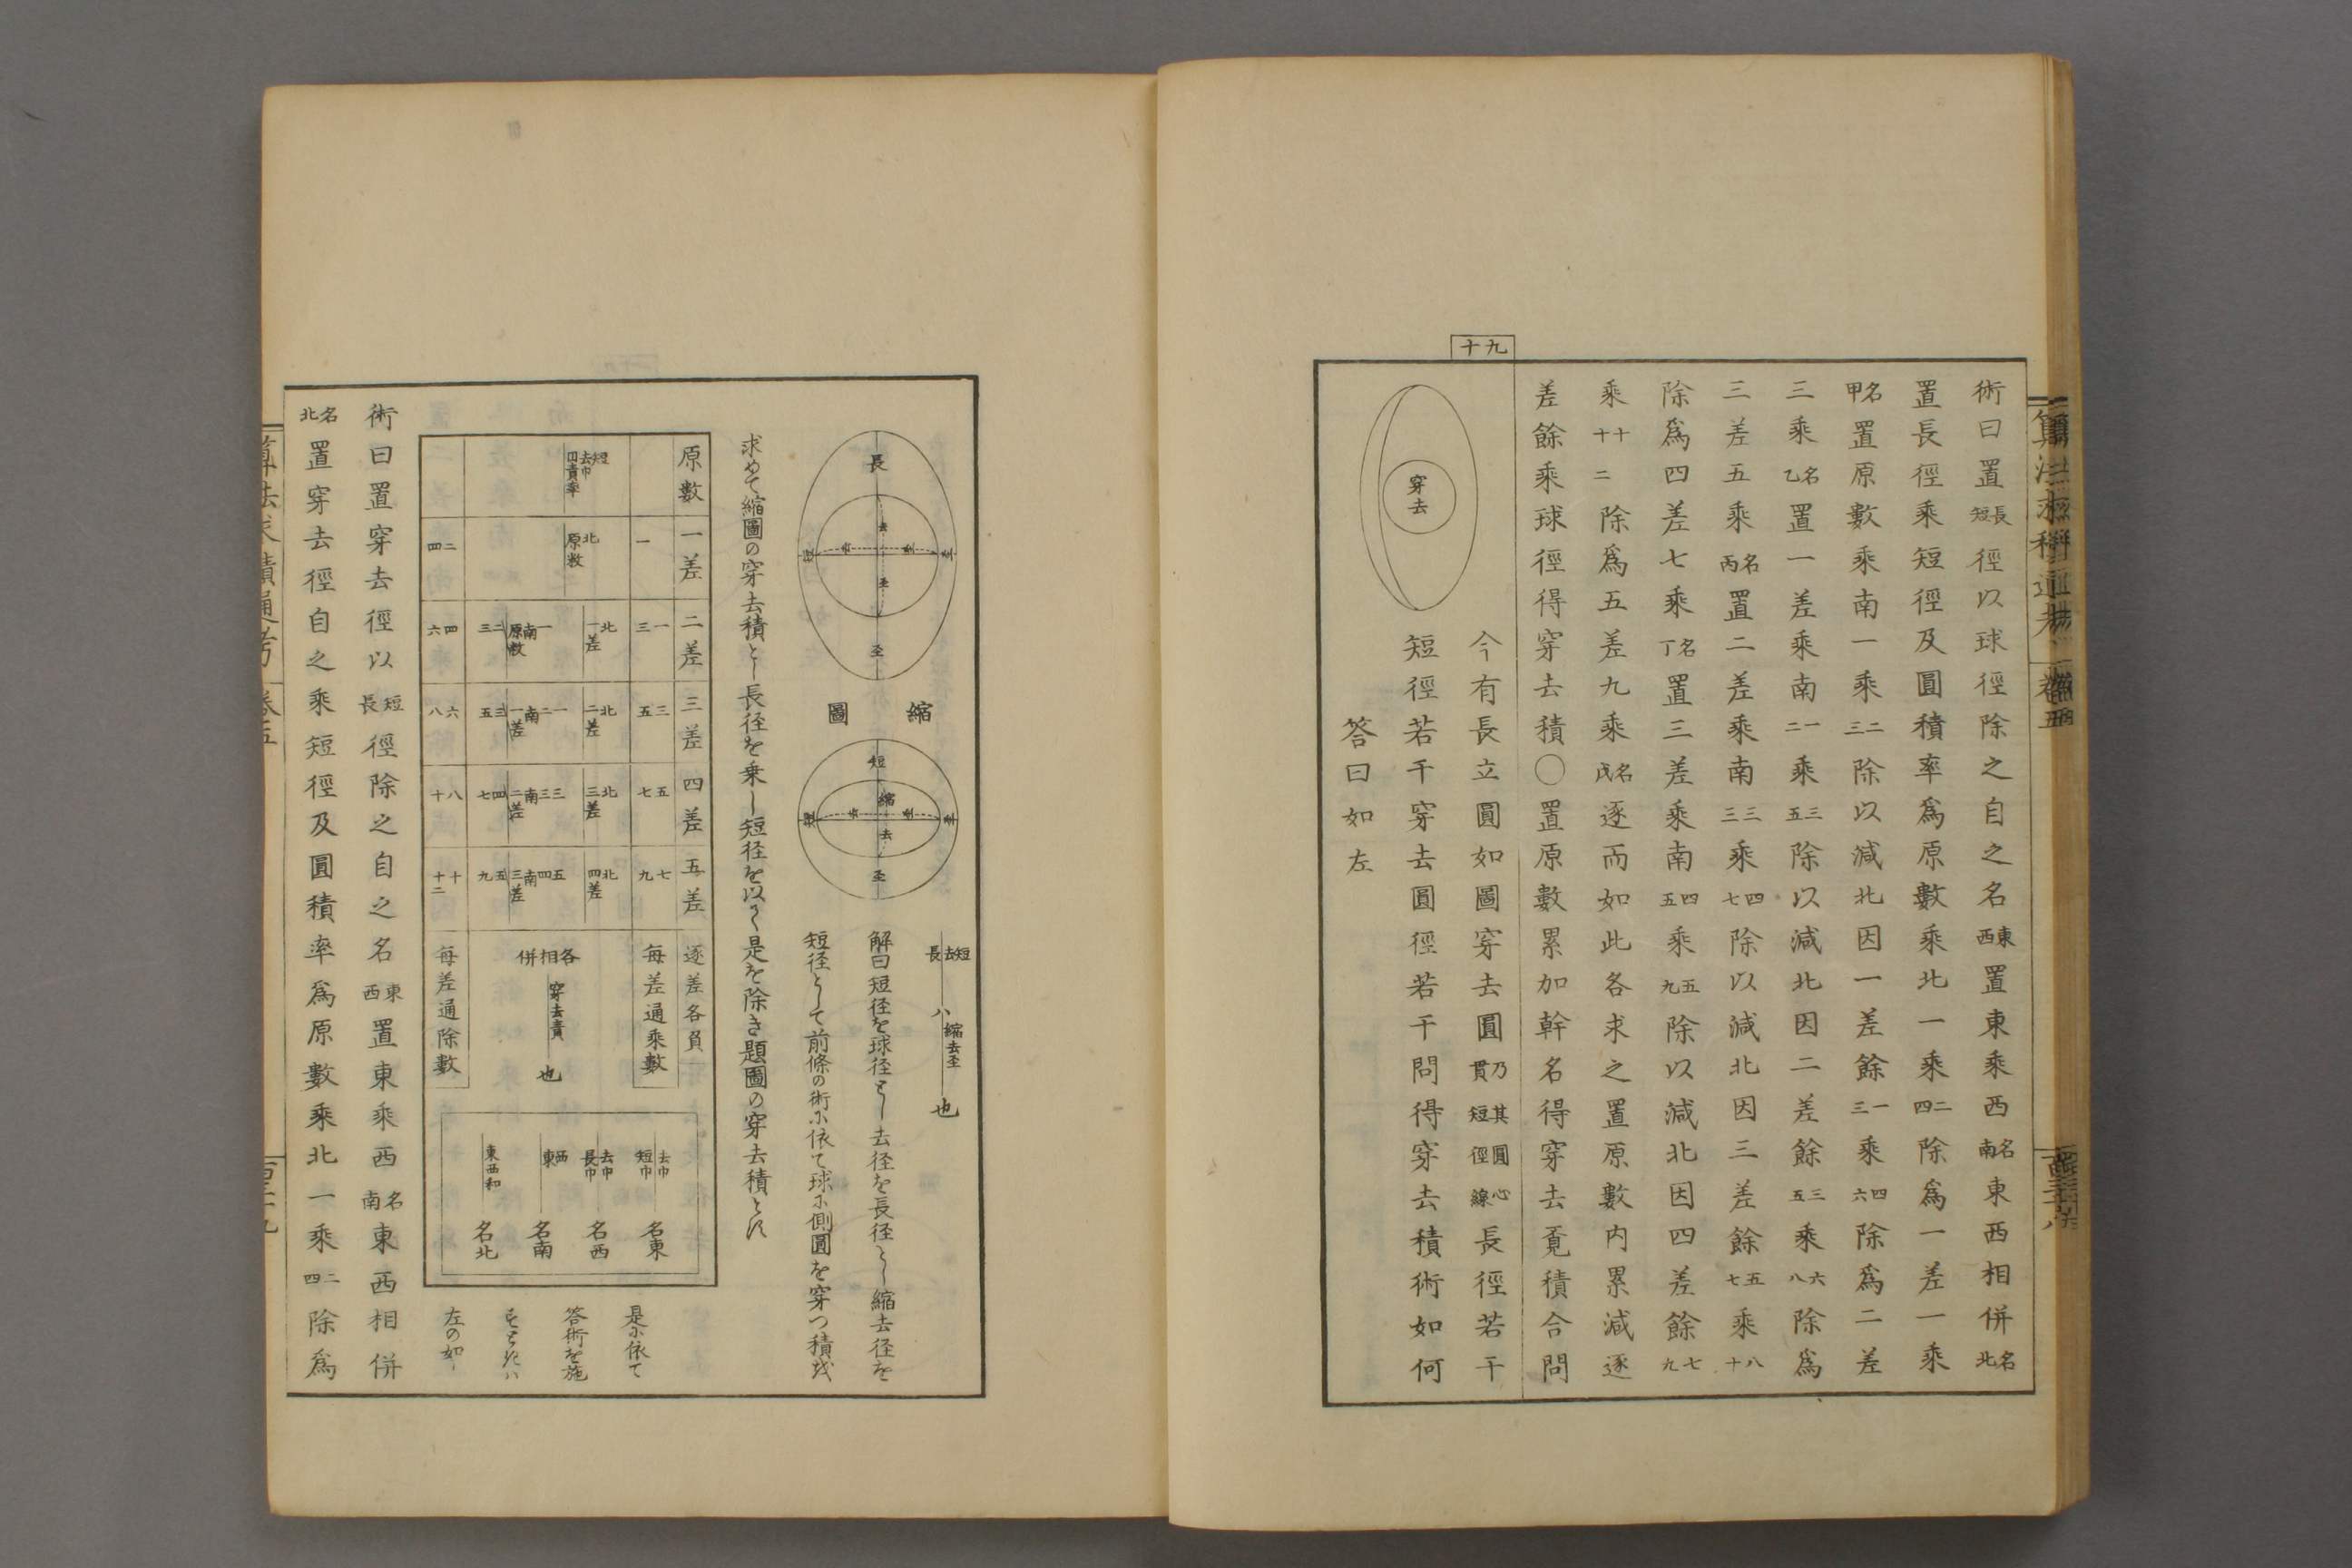 術曰置短長徑以球徑除之自之名東西置東乘西名南東西相併名北
置長徑乘短徑及圓積率爲原數乘北一乘二四除爲一差一乘
名甲置原數乘南一乘二三除以減北因一差餘一三乘四六除爲二差
三乘名乙置一差乘南一二乘三五除以減北因二差餘三五乘六八除爲
三差五乘名丙置二差乘南三三乘四七除以減北因三差餘五七乘八十
除爲四差七乘名丁置三差乘南四五乘五九除以減北因四差餘七九
乘十十二除爲五差九乘名戊逐而如此各求之置原數内累減逐
差餘乘球徑得穿去積〇置原數累加幹名得穿去覔積合問
十九
穿去
今有長立圓如圖穿去圓乃貫其短圓徑心線長徑若干
短徑若干穿去圓徑若干問得穿去積術如何
答曰如左
算法求積通考
長
去
短
去
至
至
至
至
縮圖
短
縮
去
去
至
至
至
短去長
八縮去至
也
解曰短径を球径とし去径を長径とし縮去径を
短径として前條の術に依て球に側圓を穿つ積を
求めて縮圖の穿去積とし長径を乗し短径を以て是を除き題圖の穿去積とす
原數 一差 二差 三差 四差 五差 逐差各負
一 一三 三五 五七 七九 每差通乘數
短去巾円責率 北原数 北一差 北二差 北三差 北四差 各相併
一南原数 一二南一差 三三南二差 五四南三差 穿去責也
二三 三五 四七 五九
二四 四六 六八 八十 十十二 每差通除數
去巾短巾 名東
去巾長巾 名西
東西 名南
東西和 名北
是に依て
答術を施
左の如し
術曰置穿去徑以短長徑除之自之名東西置東乘西名南東西相併
名北置穿去徑自之乘短徑及圓積率爲原數乘北一乘二四除爲
算法求積通考 卷五